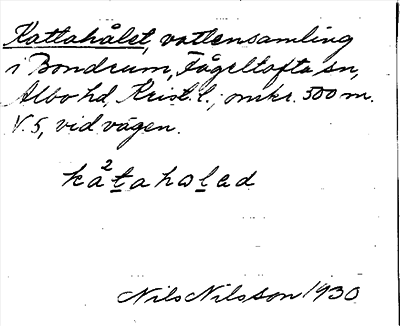 Kattahålet, vattensamling
i Bondrum, Fågeltofta sn,
Albo hd, Krist. l.; omkr. 500 m.
V. 5, vid vägen.
ka²taholad
Nils Nilsson 1930